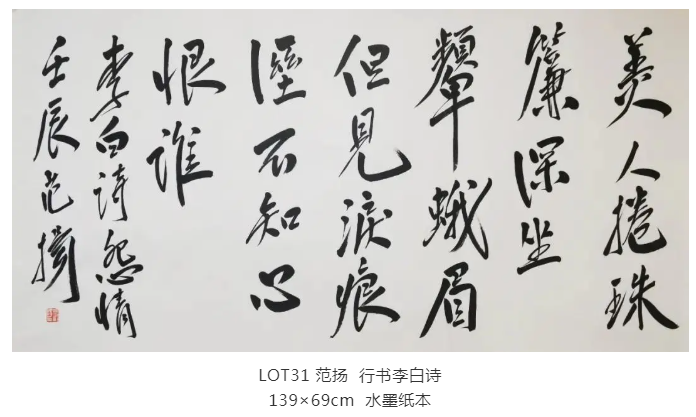 美人捲珠
簾深坐
顰蛾眉
但見淚痕
溼不知心
恨誰
李白詩怨情
壬辰范揚
LOT31 范扬 行书李白诗
139×69cm 水墨纸本